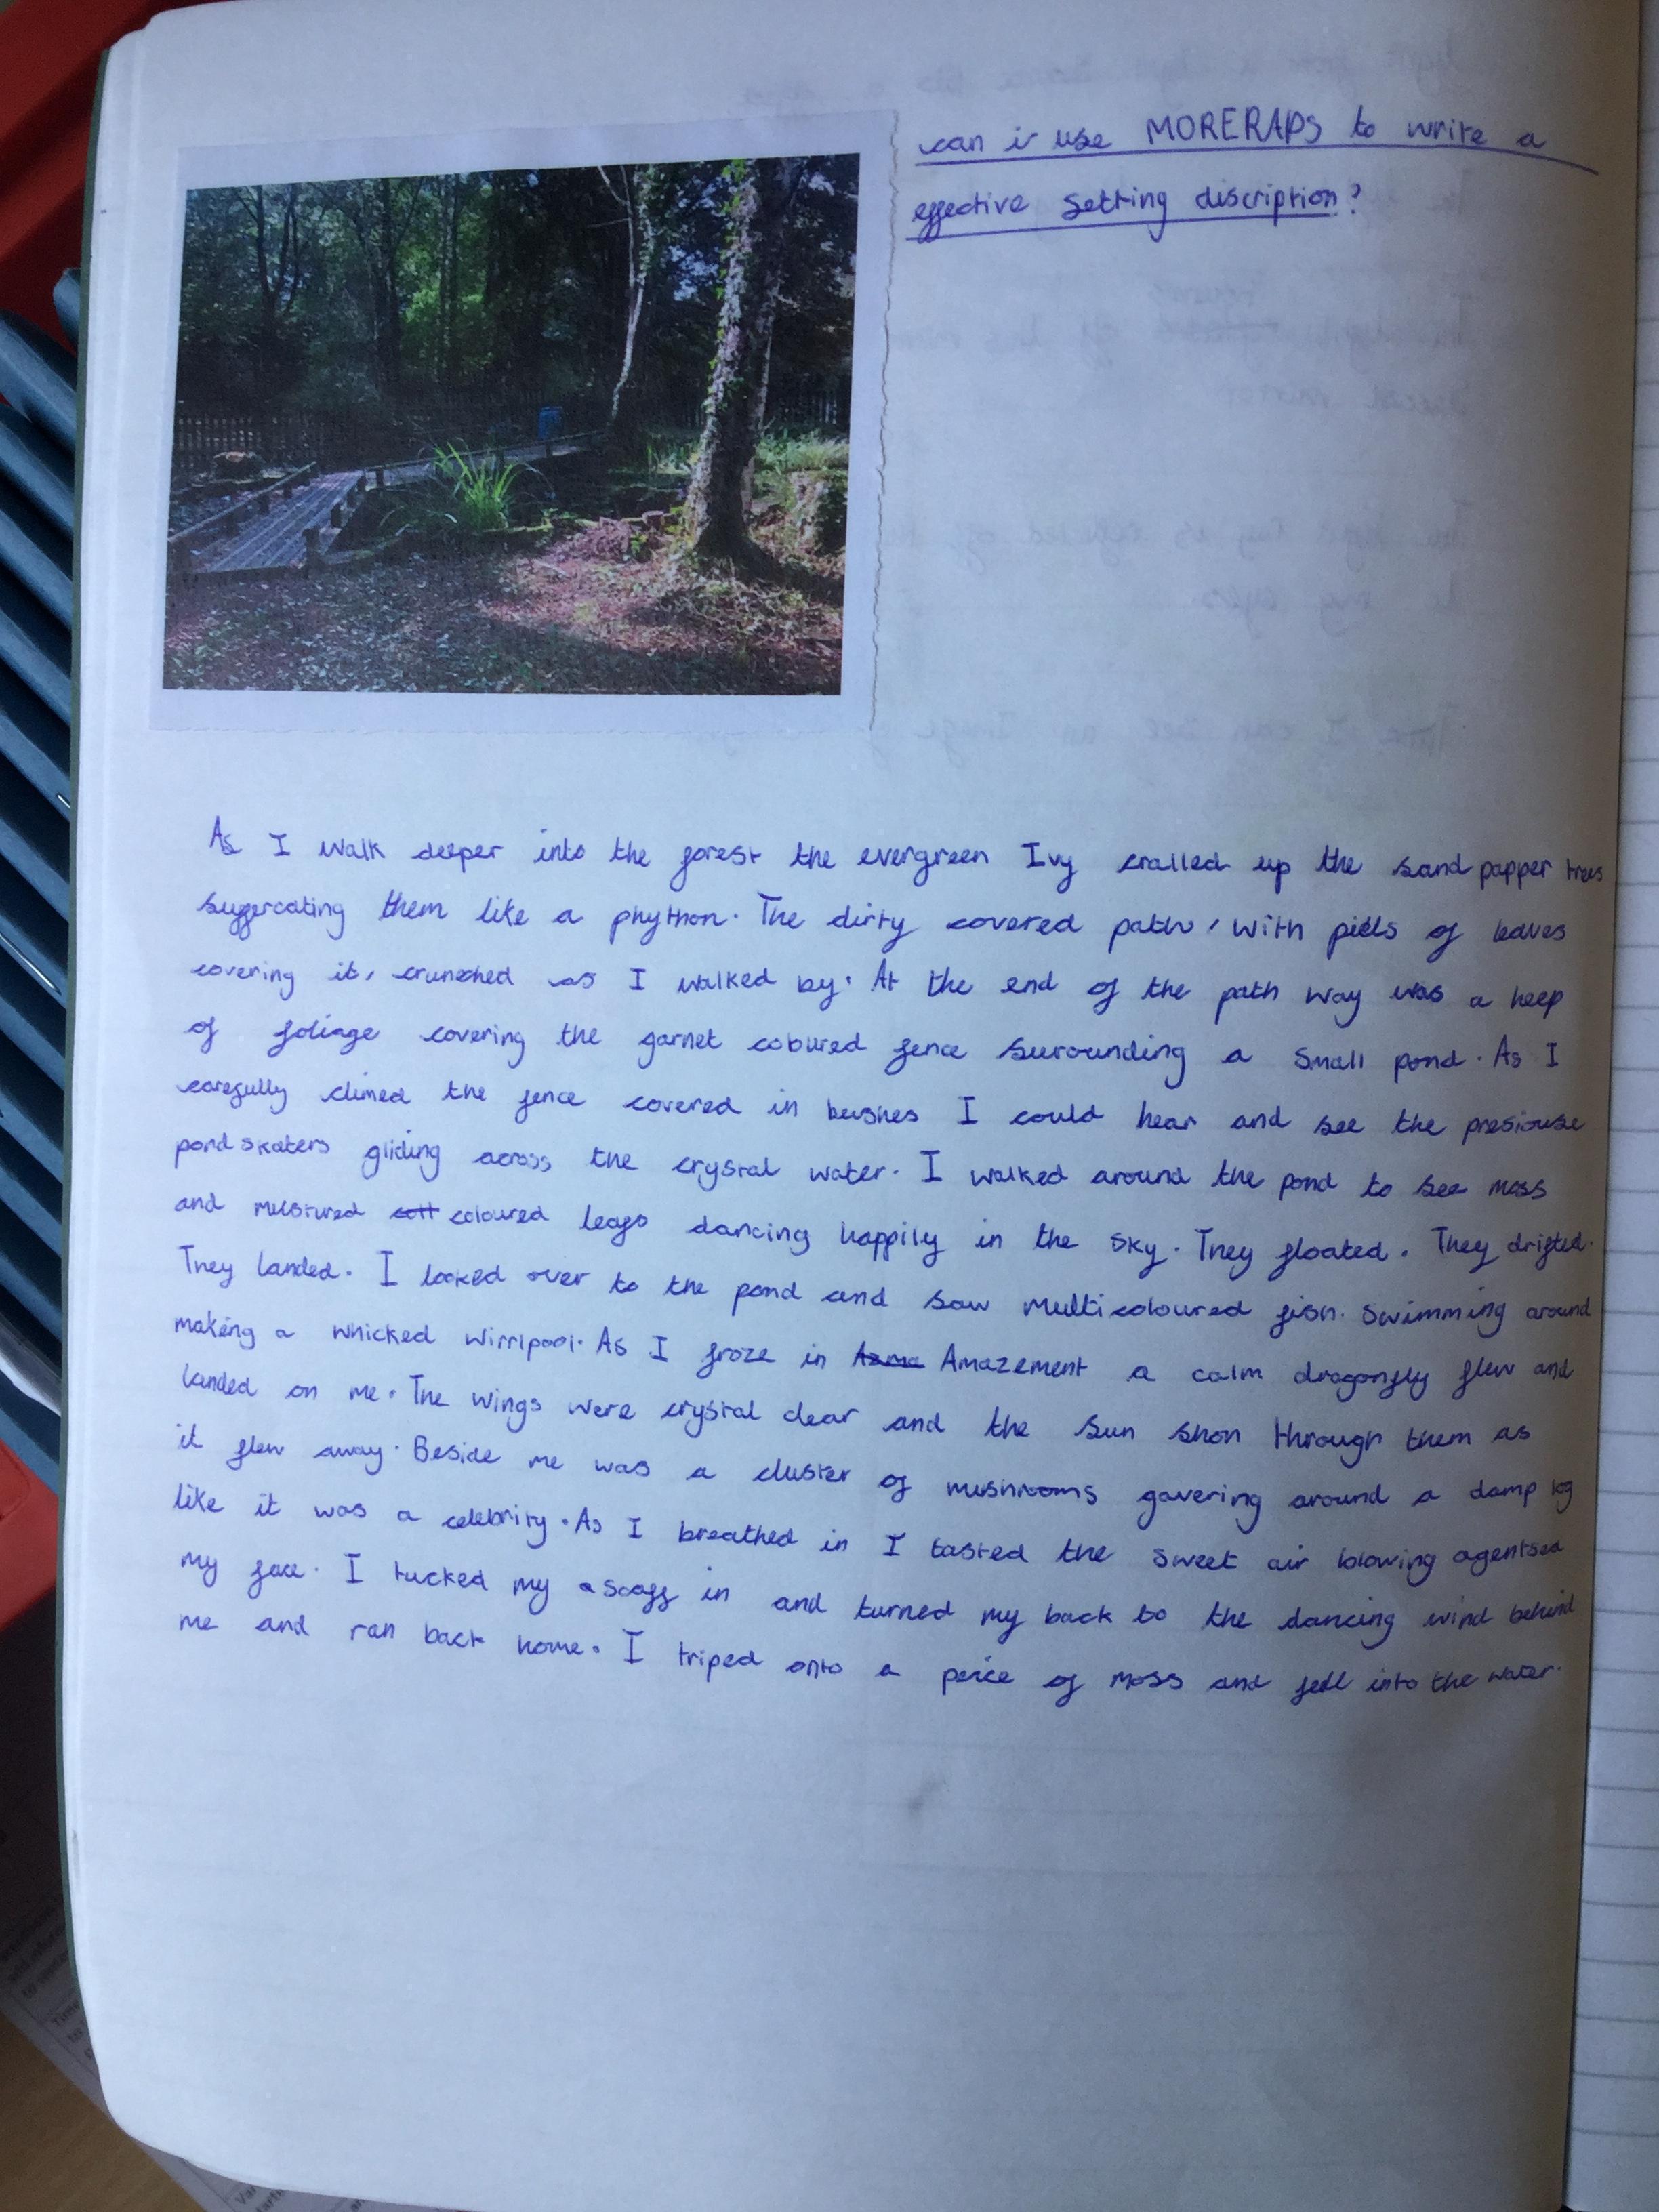 can i use MORERAPS to write a
effective setting discription?
As I walk deeper into the forest the evergreen Ivy cralled up the sand papper trees
suffercating them like a phython. The dirty covered path, with piells of leaves
covering it, crunched as I walked by. At the end of the path way was a heep
of foliage covering the garnet coloured fence surounding a small pond. As I
carefully climed the fence covered in bushes I could hear and see the presiouse
pond skaters gliding across the crystal water. I walked around the pond to see moss
and mustured coloured leafs dancing happily in the sky. They floated. They drifted.
They landed. I looked over to the pond and saw multicoloured fish. Swimming around
making a whicked wirrlpool. As I froze in Amazement a calm dragonfly flew and
landed on me. The wings were crystal clear and the sun shon through them as
it flew away. Beside me was a cluster of mushrooms gavering around a damp log
like it was a celebrity. As I breathed in I tasted the sweet air blowing agentsed
my face. I tucked my scaff in and turned my back to the dancing wind behind
me and ran back home. I triped onto a peice of moss and fell into the water.